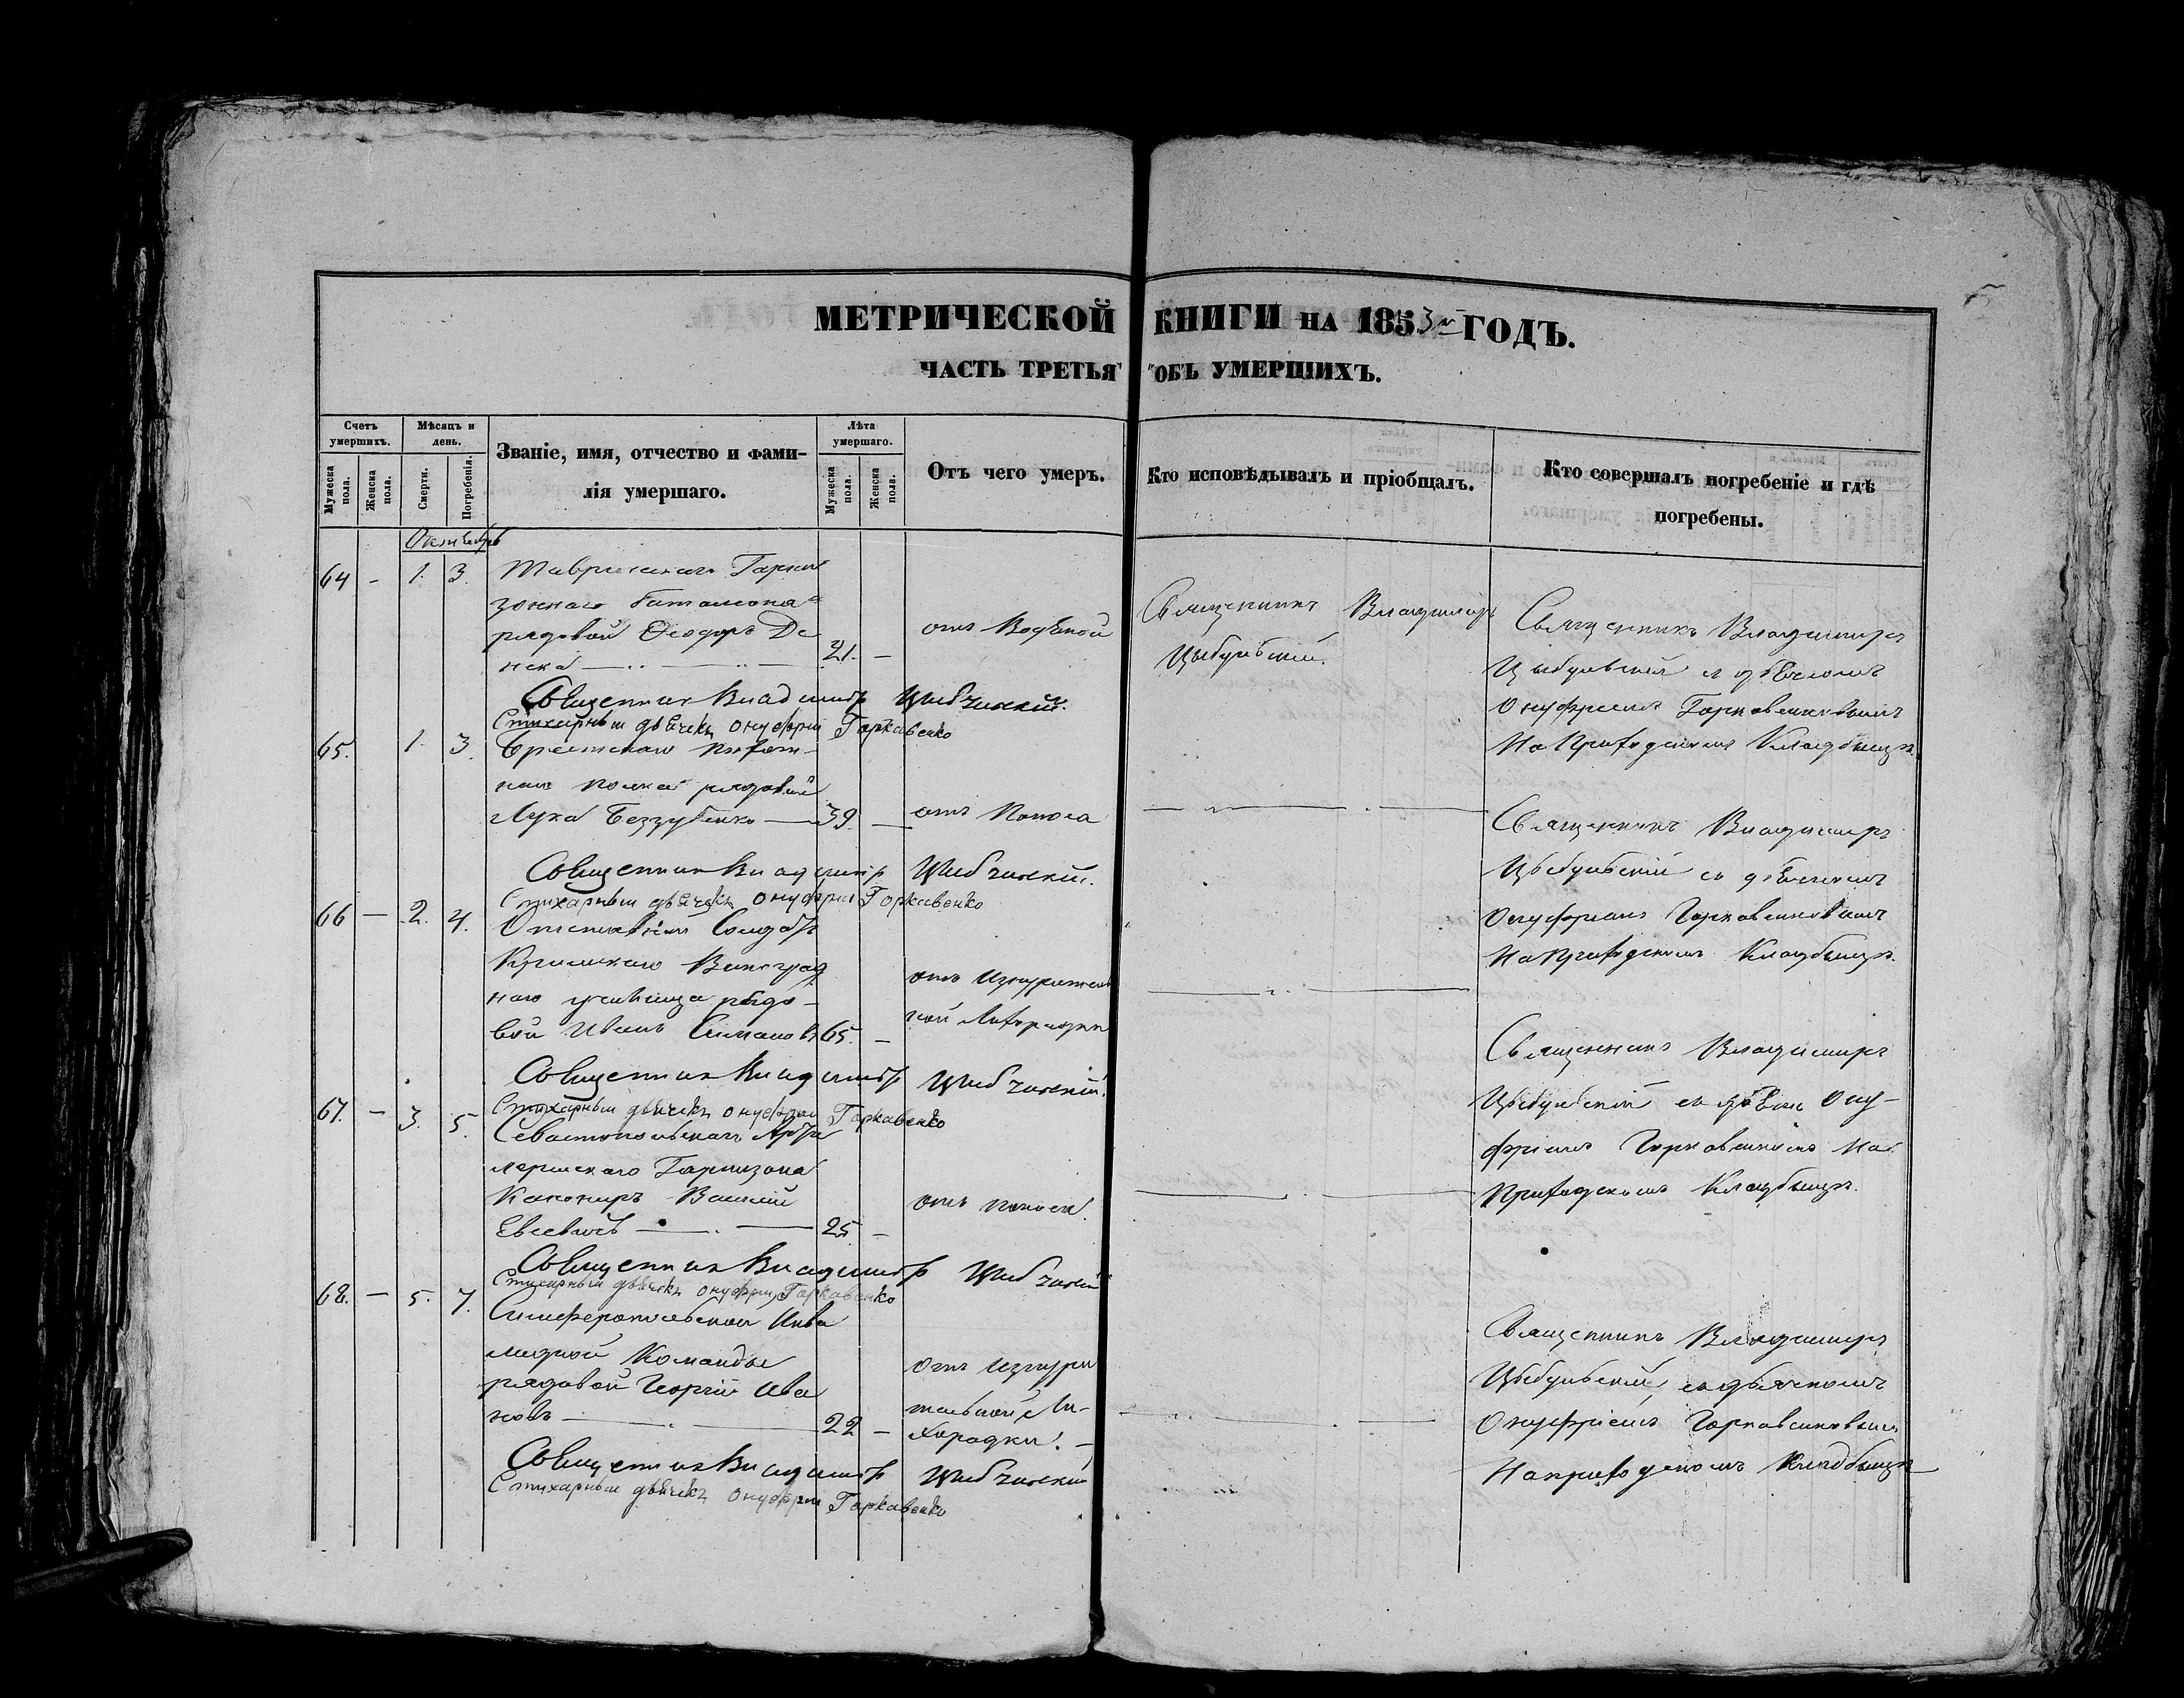 МЕТРИЧЕСКОЙ КНИГИ НА 1853й ГОДЪ.
ЧАСТЬ ТРЕТЬЯ ОБЪ УМЕРШИХЪ.
Счетъ умершихъ.
Мѣсяцъ и день.
Званіе, имя, отчество и фами-
лія умершаго.
Лѣта умершаго.
Отъ чего умеръ.
Кто исповѣдывалъ и пріобщалъ.
Кто совершалъ погребеніе и гдѣ
погребены.
Мужеска пола.
Женска пола.
Смерти.
Погребенія.
Мужеска пола.
Женска пола.
Октября
64 - 1. 3. Таврическаго Гарни
зоннаго баталіона
рядовой Ѳеодоръ Де
нека 21. -
отъ Водяной
Священникъ Владимиръ
Цыбульскій.
Священникъ Владимиръ
Цыбульскій съ дьячкомъ
Онуфріемъ Горковенковымъ
На Приходскомъ Кладбищѣ.
Священник Владимір Цибульскій.
Стихарный дьячекъ Онуфрій Горкавенко
65. 1. 3. Брестскаго пѣхот-
наго полка рядовой
Лука Беззубенко 39. -
отъ Поноса
Священникъ Владимиръ
Цыбульскій съ дьячкомъ
Онуфріемъ Горковенковымъ
На Приходскомъ Кладбищѣ.
Священник Владимір Цибульскій.
Стихарный дьячекъ Онуфрій Горкавенко
66 - 2. 4. Отставной Солдатъ
Крымскаго Виноград
наго училища рядо-
вой Иванъ Симановъ 65. -
отъ Изнурителъ
ной Лихорадки
Священникъ Владимиръ
Цыбульскій съ дьячк. Ону-
фріемъ Горковенкомъ На
Приходскомъ Кладбищѣ.
Священник Владимір Цибульскій.
Стихарный дьячекъ Онуфрій Горкавенко
67. - 3. 5. Севастопольскаго Арти
лерійскаго Гарнизона
Канониръ Василій
25. -
отъ поноса.
Священник Владимір Цибульскій
Стихарный дьячекъ Онуфрій Горкавенко
68. - 5. 7. Симферопольской Инва
лидной Команды
рядовой Георгій Ива
новъ 22 -
отъ Изнури
тельной Ли-
хорадки. -
Священникъ Владимиръ
Цыбульскій, съ дьячкомъ
Онуфріемъ Горковенковымъ
На приходскомъ Кладбищѣ
Священник Владимір Цибульскій
Стихарный дьячекъ Онуфрій Горкавенко